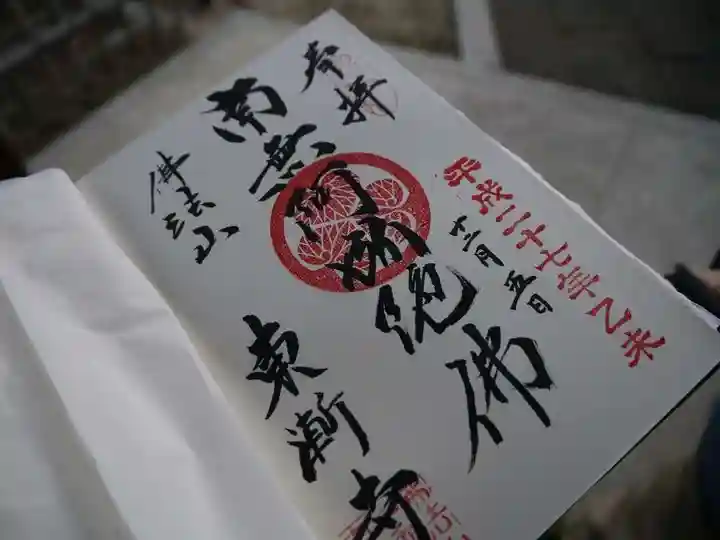 平成二十七年乙未
十二月五日
奉拝
南無阿弥陀佛
佛法山
東漸寺